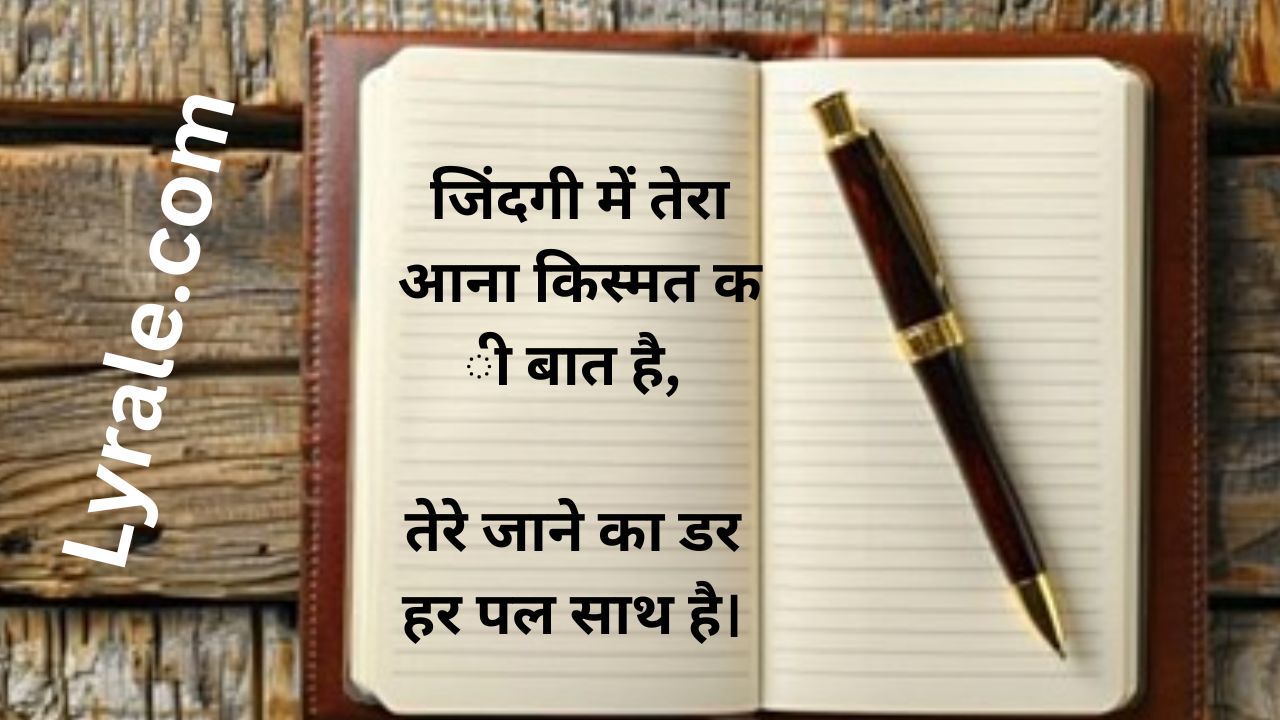 Lyrale.com
जिंदगी में तेरा
आना किस्मत क
ी बात है,
तेरे जाने का डर
हर पल साथ है।